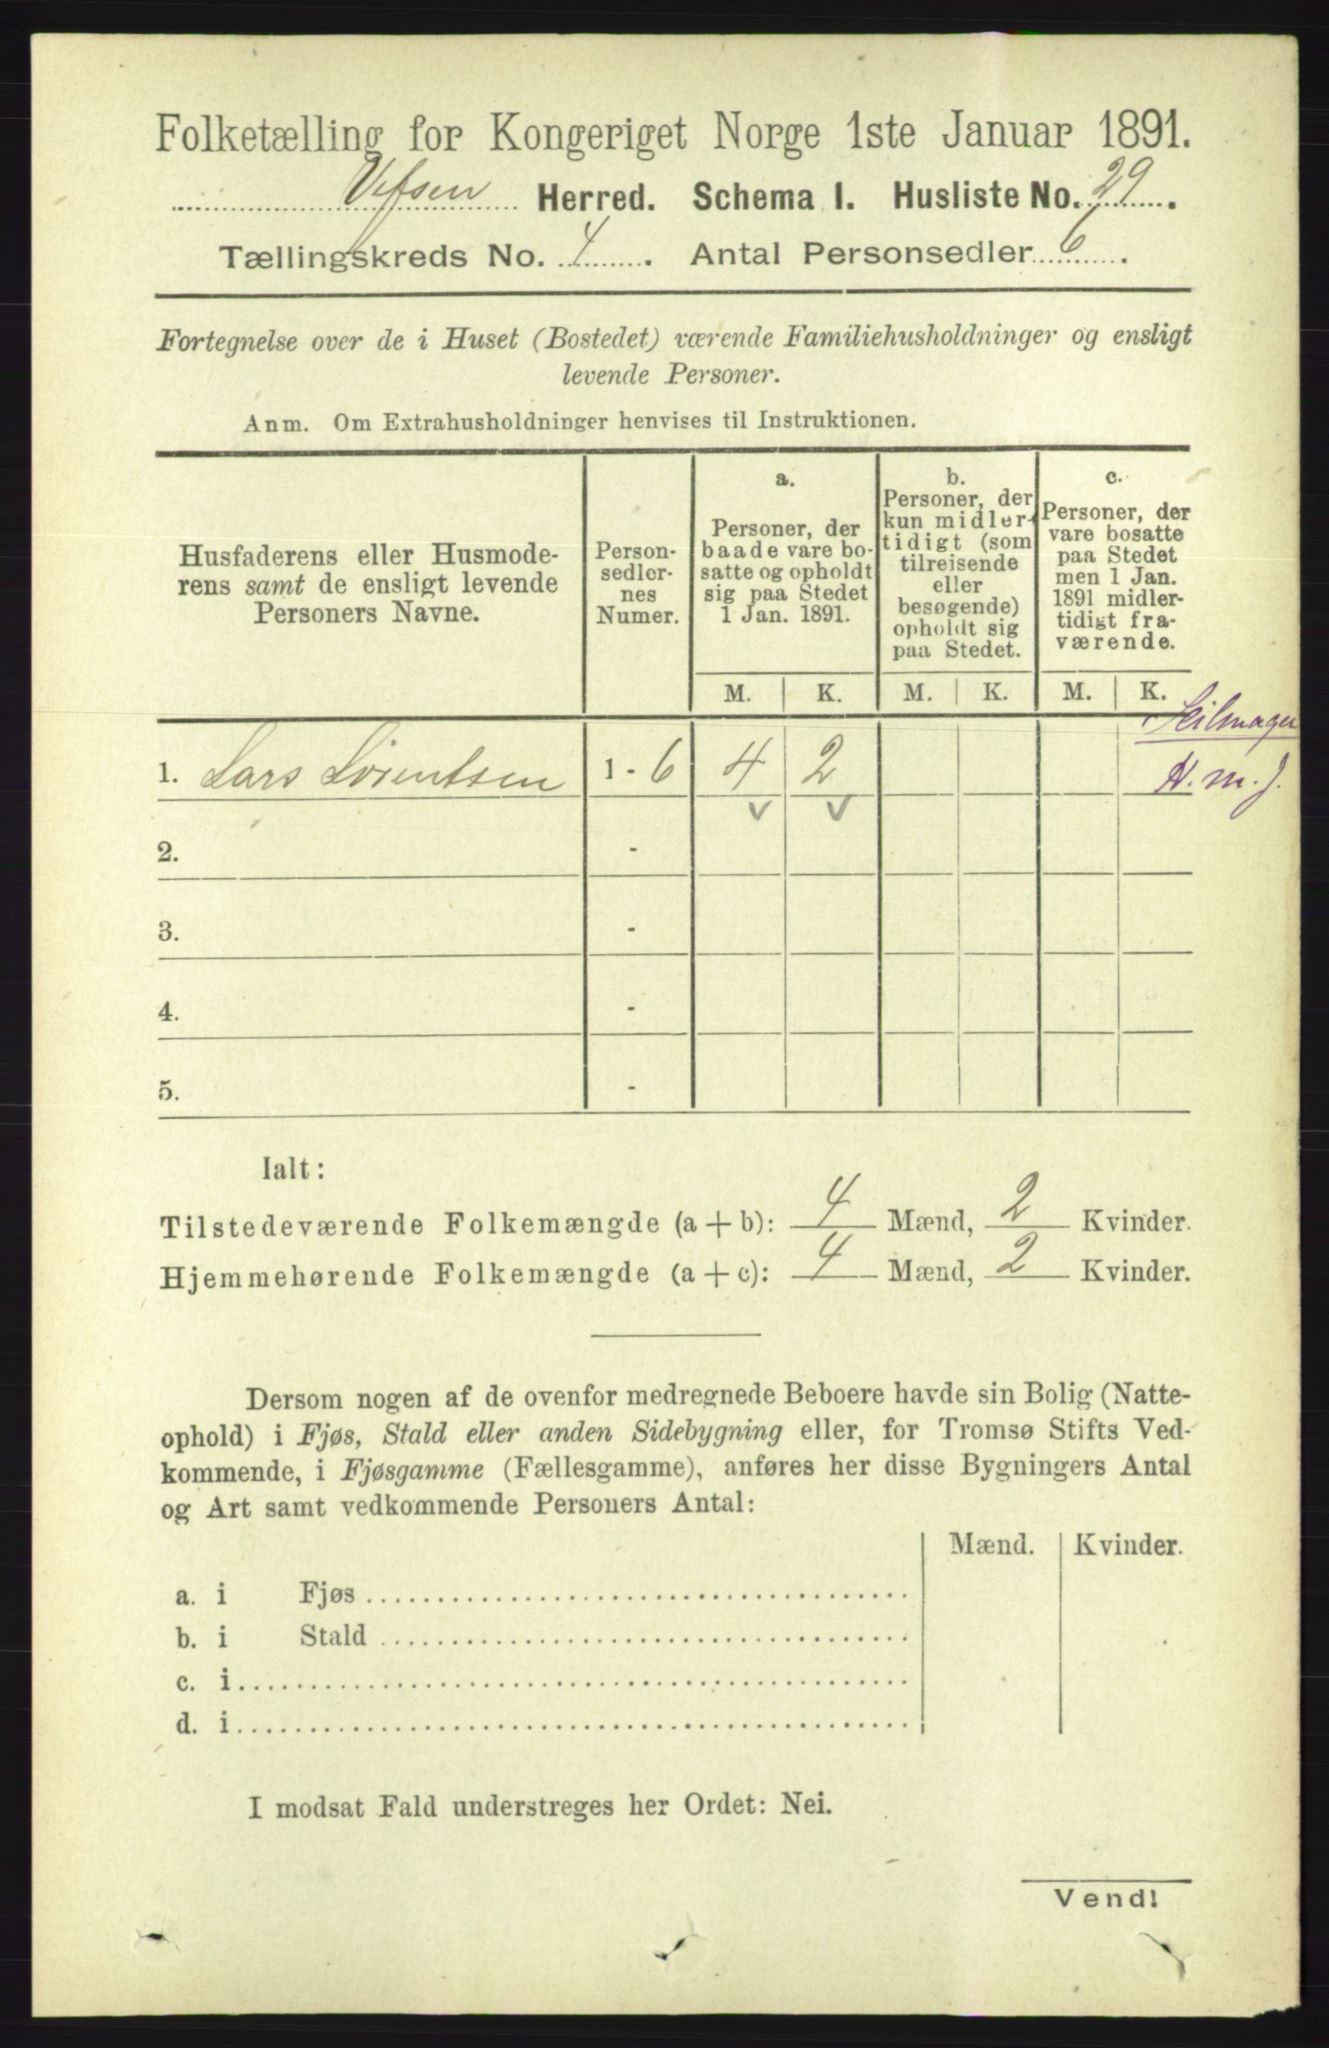 Folketælling for Kongeriget Norge 1ste Januar 1891.
Vefsen Herred. Schema I. Husliste No. 29.
Tællingskreds No. 4. Antal Personsedler 6.
Fortegnelse over de i Huset (Bostedet) værende Familiehusholdninger og ensligt
levende Personer.
Anm. Om Extrahusholdninger henvises til Instruktionen.
Husfaderens eller Husmode-
rens samt de ensligt levende
Personers Navne.
Person-
sedler-
nes
Numer.
a.
Personer, der
baade vare bo-
satte og opholdt
sig paa Stedet
1 Jan. 1891.
b.
Personer, der
kun midler-
tidigt (som
tilreisende
eller
besøgende)
opholdt sig
paa Stedet.
c.
Personer, der
vare bosatte
paa Stedet
men 1 Jan.
1891 midler-
tidigt fra-
værende.
M. K. M. K. M. K.
Seilmager
1. Lars Lorentsen 1 - 6 4 2 H. m. J.
2. -
3. -
4. -
5. -
Ialt:
Tilstedeværende Folkemængde (a + b): 4 Mænd, 2 Kvinder.
Hjemmehørende Folkemængde (a + c): 4 Mænd, 2 Kvinder.
Dersom nogen af de ovenfor medregnede Beboere havde sin Bolig (Natte-
ophold) i Fjøs, Stald eller anden Sidebygning eller, for Tromsø Stifts Ved-
kommende, i Fjøsgamme (Fællesgamme), anføres her disse Bygningers Antal
og Art samt vedkommende Personers Antal:
Mænd. Kvinder.
a. i Fjøs
b. i Stald
c. i
d. i
I modsat Fald understreges her Ordet: Nei.
Vend!